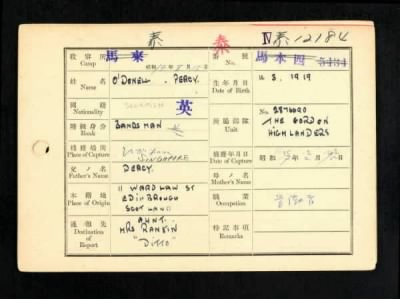 泰 泰 Ⅳ泰12184
收容所
Camp
馬來
昭和
番號
No.
馬本四 5484
姓名
Name
O'DONELL, PERCY.
生年月日
Date of Birth
11. 8. 1919
國籍
Nationality
英
所屬部隊
Unit
No.
THE GORDON
HIGHLANDERS
階級身分
Rank
BANDSMAN
捕獲場所
Place of Capture
SINGAPORE
捕獲年月日
Date of Capture
昭和 年 月 日
父ノ名
Father's Name
PERCY.
母ノ名
Mother's Name
本籍地
Place of Origin
11 WARDLAW ST
EDINBROUGH
SCOTLAND
職業
Occupation
通報先
Destination of
Report
AUNT.
MRS RANKIN
"DITTO"
特記事項
Remarks